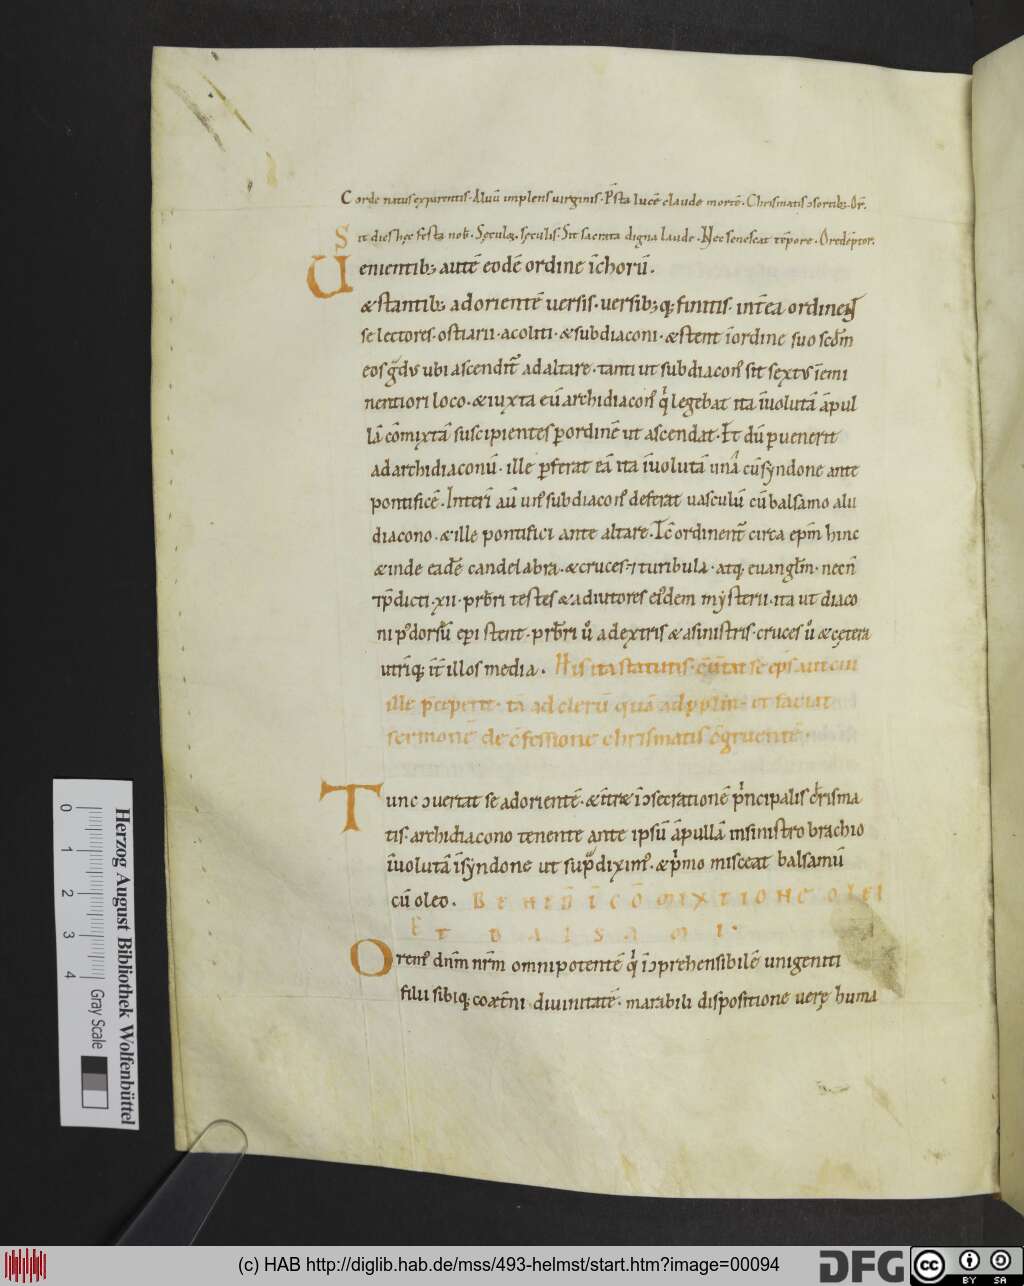 Corde natus exparentis · Aluū implens uirginis · P̄sta lucē claude mortē · Chrismatis ↄsortib; · Or̄.
Sit dies hęc festa nob̄ · Sęculę sęculis · Sit sacrata digna laude · Nec senescat tēpore · Oredēptor.
Uenientib; autē eodē ordine īchorū.
&stantib; adorientē uersis · uersib;q; finitis · int̄ea ordinent
se lectores · ostiarii · acoliti · & subdiaconi · & stent īordine suo scdm̄
eos gͣdus ubi ascendit̄ adaltare · tanti ut subdiacon̄ sit sextus īemi
nentiori loco · & iuxta eū archidiacon̄ qͥ legebat ita īuolutā āpul
lā cōmixtā suscipientes p̄ordinē ut ascendat · Et dū puenerit
adarchidiaconū · ille pferat eā ita īuolutā unā cū syndone ante
pontificē · Interī aū un̄ subdiacon̄ deferat uasculū cū balsamo alii
diacono · & ille pontifici ante altare · Tc̄ ordinent̄ circa epm̄ hinc
& inde eadē candelabra · & cruces · ⁊ turibula · atq; euanglm̄ · necn̄
p̄dicti · xii · prb̄ri testes & adiutores eiͥdem mysterii · ita ut diaco
ni pͦ dorsū epi stent · prb̄ri u̇ adextris & asinistris · cruces u̇ & cętera
utriq; īt illos media · His ita statutis · c̄uertat se ep̄s aut cui
ille p̄ceperit · tā ad clerū quā adpp̄lm̄ · et faciat
sermonē de c̄fessione chrismatis c̄gruentē ·
Tunc ↄuertat se adorientē · & īt̄& īↄsecrationē pͥncipalis chͥrisma
tis · archidiacono tenente ante ipsū āpullā insinistro brachio
īuolutā īsyndone ut sup̄ diximꝰ · & pͥmo misceat balsamū
cū oleo · BENED̄ Ī CŌMIXTIONE OLEI
ET BALSAMI ·
Oremꝰ dn̄m nr̄m omnipotentē qͥ īↄprehensibilē unigeniti
filii sibiq; coæt̄ni diuinitatē · mirabili dispositione uerę huma
Herzog August Bibliothek Wolfenbüttel
0 1 2 3 4 Gray Scale
(c) HAB http://diglib.hab.de/mss/493-helmst/start.htm?image=00094
DFG
cc BY SA